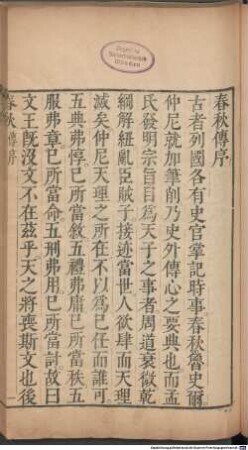 春秋傳序
古者列國各有史官掌記時事春秋魯史爾
仲尼就加筆削乃史外傳心之要典也而孟
氏發明宗旨目爲天子之事者周道衰微乾
綱解紐亂臣賊子接迹當世人欲肆而天理
滅矣仲尼天理之所在不以爲已任而誰可
五典弗惇已所當敘五禮弗庸已所當秩五
服弗章已所當命五刑弗用已所當討故曰
文王旣沒文不在兹乎天之將喪斯文也後
春秋傳序
一